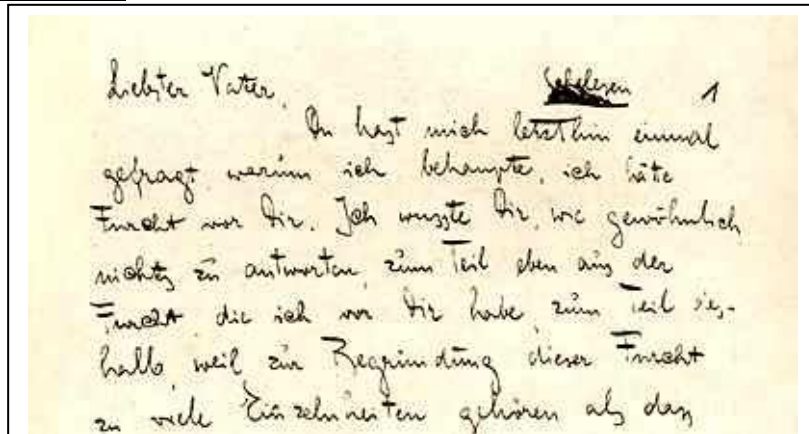 Liebster Vater,
Schelesen 1
Du hast mich letzthin einmal
gefragt, warum ich behaupte, ich hätte
Furcht vor Dir. Ich wusste Dir, wie gewöhnlich
nichts zu antworten, zum Teil eben aus der
Furcht die ich vor Dir habe, zum Teil des-
halb, weil zur Begründung dieser Furcht
zu viele Einzelnheiten gehören als dass